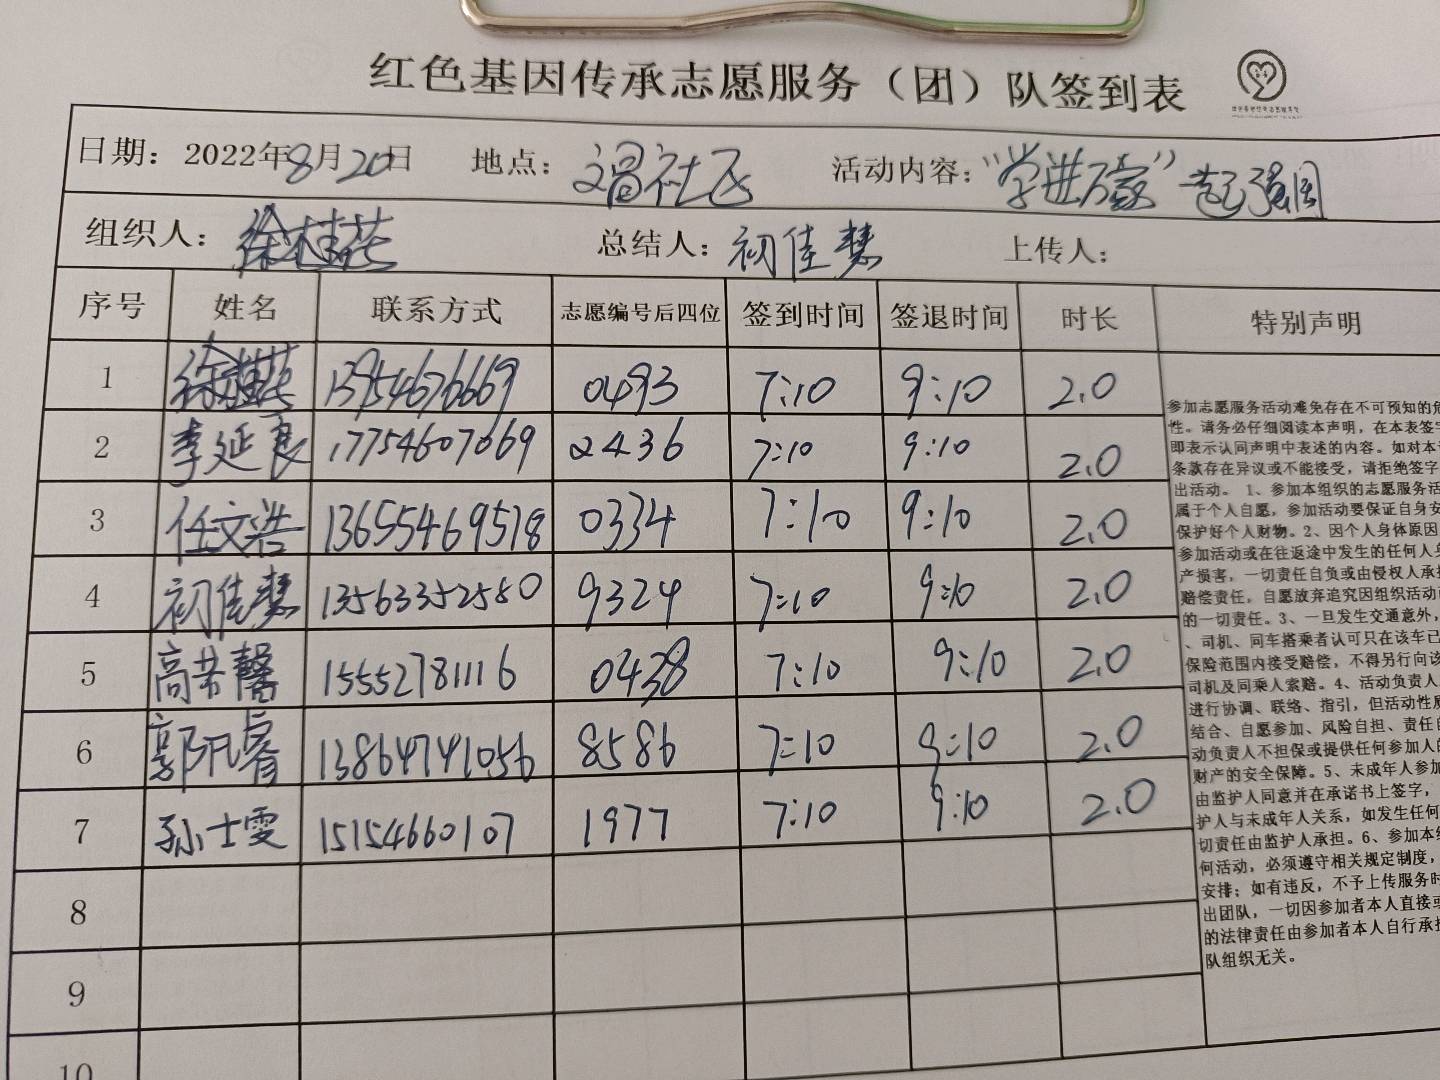 红色基因传承志愿服务（团）队签到表
日期：2022年8月20日 地点：文昌社区 活动内容：“学进万家”
组织人：徐桂花 总结人：初佳慧 上传人：
序号 姓名 联系方式 志愿编号后四位 签到时间 签退时间 时长 特别声明
1 徐桂花 13954676669 0493 7:10 9:10 2.0
2 李延良 17754607069 2436 7:10 9:10 2.0
3 任文浩 13655469578 0334 7:10 9:10 2.0
4 初佳慧 13563352580 9324 7:10 9:10 2.0
5 高 馨 15552781116 0438 7:10 9:10 2.0
6 郭凡睿 13864741056 8586 7:10 9:10 2.0
7 孙士雯 15154660107 1977 7:10 9:10 2.0
8
9
10
参加志愿服务活动难免存在不可预知的危
性。请务必仔细阅读本声明，在本表签字
即表示认同声明中表述的内容。如对本
条款存在异议或不能接受，请拒绝签字
出活动。 1、参加本组织的志愿服务活
属于个人自愿，参加活动要保证自身安
保护好个人财物。2、因个人身体原因
参加活动或在往返途中发生的任何人身
产损害，一切责任自负或由侵权人承担
赔偿责任，自愿放弃追究因组织活动
的一切责任。3、一旦发生交通意外，
、司机、同车搭乘者认可只在该车已
保险范围内接受赔偿，不得另行向该
司机及同乘人索赔。4、活动负责人
进行协调、联络、指引，但活动性质
结合、自愿参加、风险自担、责任自
动负责人不担保或提供任何参加人的
财产的安全保障。5、未成年人参加
由监护人同意并在承诺书上签字，
护人与未成年人关系，如发生任何
切责任由监护人承担。6、参加本组
何活动，必须遵守相关规定制度，
安排；如有违反，不予上传服务时
出团队，一切因参加者本人直接或
的法律责任由参加者本人自行承担
队组织无关。